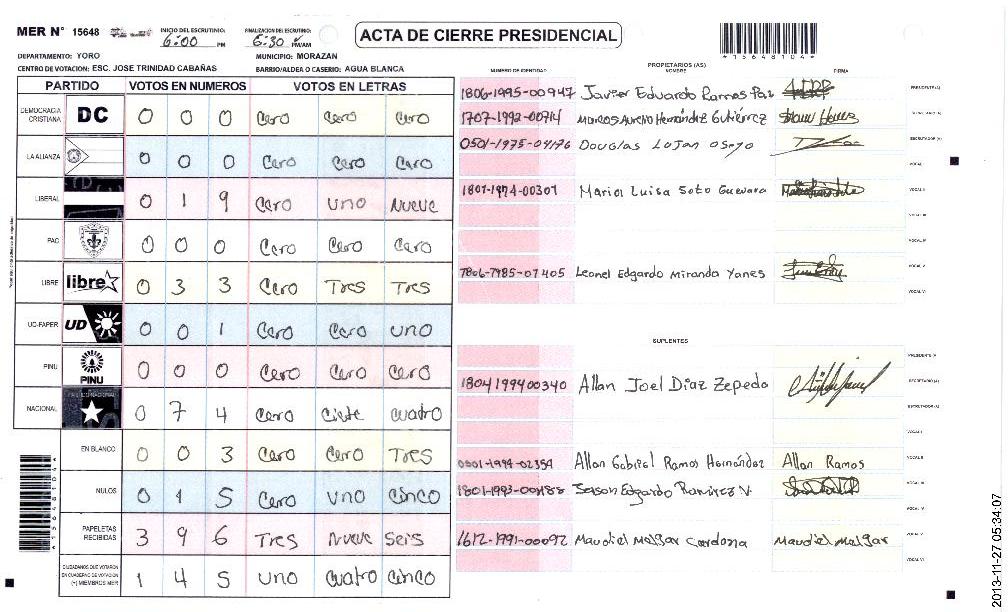 MER N° 15648
INICIO DEL ESCRUTINIO: 6:00 PM
FINALIZACION DEL ESCRUTINIO: 6:30 PM/AM
ACTA DE CIERRE PRESIDENCIAL
*15648104*
DEPARTAMENTO: YORO
MUNICIPIO: MORAZAN
CENTRO DE VOTACION: ESC. JOSE TRINIDAD CABAÑAS
BARRIO/ALDEA O CASERIO: AGUA BLANCA
PARTIDO VOTOS EN NUMEROS VOTOS EN LETRAS
DEMOCRACIA CRISTIANA DC 0 0 0 Cero Cero Cero
LA ALIANZA 0 0 0 Cero Cero Cero
LIBERAL 0 1 9 Cero uno Nueve
PAC 0 0 0 Cero Cero Cero
LIBRE libre 0 3 3 Cero Tres Tres
UD-FAPER UD 0 0 1 Cero Cero uno
PINU PINU 0 0 0 Cero Cero Cero
NACIONAL 0 7 4 Cero Ciete cuatro
EN BLANCO 0 0 3 Cero Cero Tres
NULOS 0 1 5 Cero uno Cinco
PAPELETAS RECIBIDAS 3 9 6 Tres Nueve Seis
CIUDADANOS QUE VOTARON EN CUADERNO DE VOTACION (+) MIEMBROS MER 1 4 5 uno cuatro cinco
*15648104*
PROPIETARIOS (AS)
NUMERO DE IDENTIDAD NOMBRE FIRMA
1806-1995-00947 Javier Eduardo Ramos Paz PRESIDENTE(A)
1707-1992-00714 Marcos Aurelio Hernández Gutiérrez SECRETARIO (A)
0501-1975-04176 Douglas Lojan Osoyo ESCRUTADOR (A)
VOCAL I
1807-1974-00301 Maria Luisa Soto Guevara VOCAL II
VOCAL III
VOCAL IV
1806-1985-01405 Leonel Edgardo Miranda Yanes VOCAL V
VOCAL VI
SUPLENTES
PRESIDENTE (A)
1804199400340 Allan Joel Díaz Zepeda SECRETARIO (A)
ESCRUTADOR (A)
VOCAL I
0501-1994-02354 Allan Gabriel Ramos Hernández Allan Ramos VOCAL II
1801-1993-00488 Jerson Edgardo Ramirez V. VOCAL III
VOCAL IV
1612-1991-00092 Maudiel Melgar Cardona Maudiel Melgar VOCAL V
VOCAL VI
2013-11-27 05:34:07